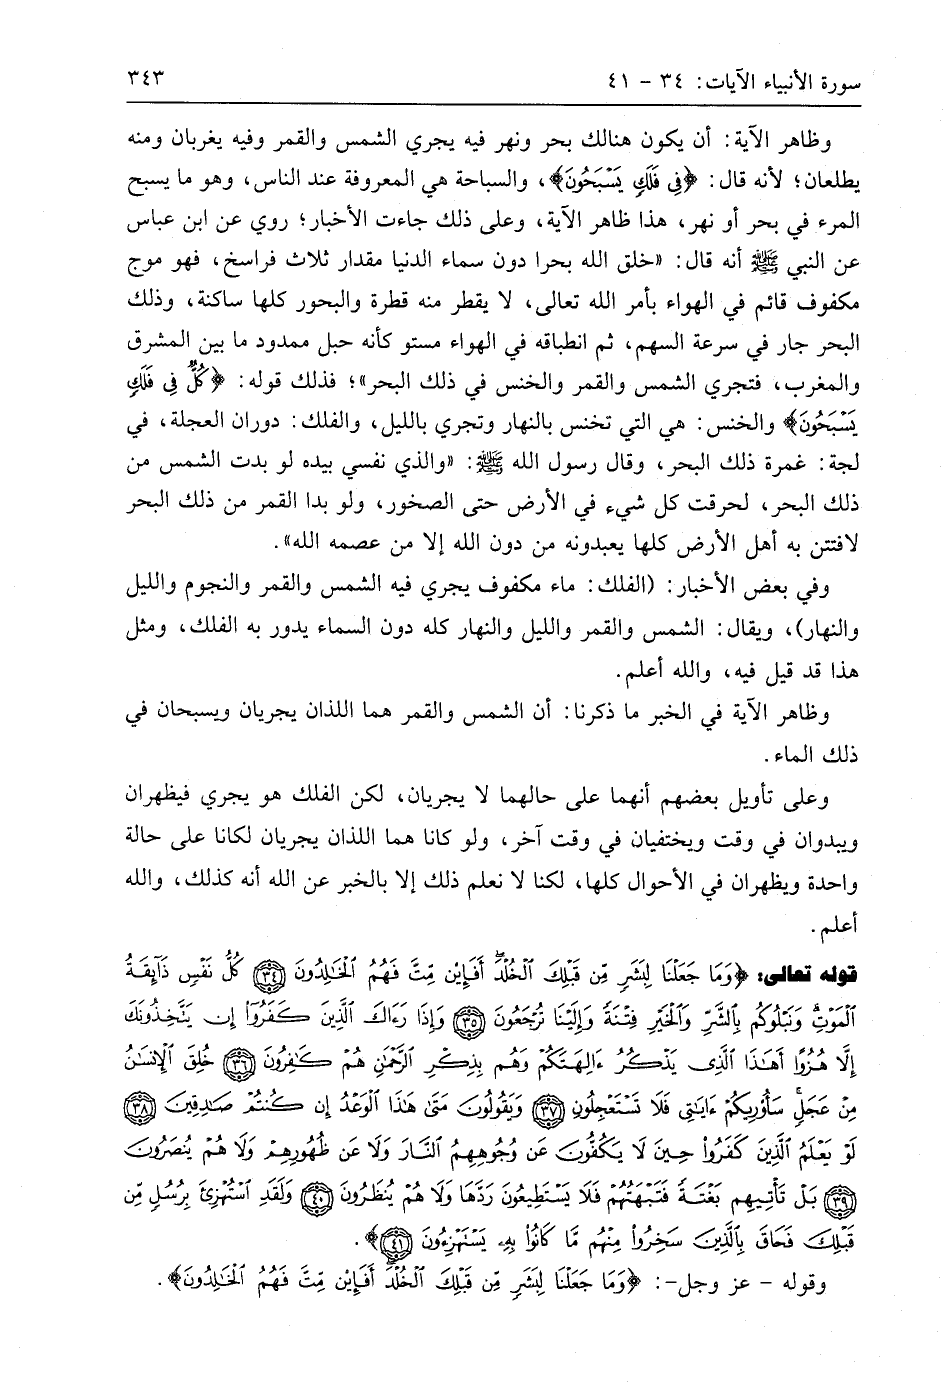 سورة الأنبياء الآيات: ٣٤ - ٤١ ٣٤٣
وظاهر الآية: أن يكون هنالك بحر ونهر فيه يجري الشمس والقمر وفيه يغربان ومنه
يطلعان؛ لأنه قال: ﴿فِي فَلَكٍ يَسْبَحُونَ﴾، والسباحة هي المعروفة عند الناس، وهو ما يسبح
المرء في بحر أو نهر، هذا ظاهر الآية، وعلى ذلك جاءت الأخبار؛ روي عن ابن عباس
عن النبي ﷺ أنه قال: «خلق الله بحرا دون سماء الدنيا مقدار ثلاث فراسخ، فهو موج
مكفوف قائم في الهواء بأمر الله تعالى، لا يقطر منه قطرة والبحور كلها ساكنة، وذلك
البحر جار في سرعة السهم، ثم انطباقه في الهواء مستو كأنه حبل ممدود ما بين المشرق
والمغرب، فتجري الشمس والقمر والخنس في ذلك البحر»؛ فذلك قوله: ﴿كُلٌّ فِي فَلَكٍ
يَسْبَحُونَ﴾ والخنس: هي التي تخنس بالنهار وتجري بالليل، والفلك: دوران العجلة، في
لجة: غمرة ذلك البحر، وقال رسول الله ﷺ: «والذي نفسي بيده لو بدت الشمس من
ذلك البحر، لحرقت كل شيء في الأرض حتى الصخور، ولو بدا القمر من ذلك البحر
لافتتن به أهل الأرض كلها يعبدونه من دون الله إلا من عصمه الله».
وفي بعض الأخبار: (الفلك: ماء مكفوف يجري فيه الشمس والقمر والنجوم والليل
والنهار)، ويقال: الشمس والقمر والليل والنهار كله دون السماء يدور به الفلك، ومثل
هذا قد قيل فيه، والله أعلم.
وظاهر الآية في الخبر ما ذكرنا: أن الشمس والقمر هما اللذان يجريان ويسبحان في
ذلك الماء.
وعلى تأويل بعضهم أنهما على حالهما لا يجريان، لكن الفلك هو يجري فيظهران
ويبدوان في وقت ويختفيان في وقت آخر، ولو كانا هما اللذان يجريان لكانا على حالة
واحدة ويظهران في الأحوال كلها، لكنا لا نعلم ذلك إلا بالخبر عن الله أنه كذلك، والله
أعلم.
قوله تعالى: ﴿وَمَا جَعَلْنَا لِبَشَرٍ مِّن قَبْلِكَ الْخُلْدَ أَفَإِيْن مِّتَّ فَهُمُ الْخَالِدُونَ ﴿٣٤﴾ كُلُّ نَفْسٍ ذَآئِقَةُ
الْمَوْتِ وَنَبْلُوكُم بِالشَّرِّ وَالْخَيْرِ فِتْنَةً وَإِلَيْنَا تُرْجَعُونَ ﴿٣٥﴾ وَإِذَا رَءَاكَ الَّذِينَ كَفَرُوٓا إِن يَتَّخِذُونَكَ
إِلَّا هُزُوًا أَهَٰذَا الَّذِى يَذْكُرُ ءَالِهَتَكُمْ وَهُم بِذِكْرِ الرَّحْمَٰنِ هُمْ كَٰفِرُونَ ﴿٣٦﴾ خُلِقَ الْإِنسَٰنُ
مِنْ عَجَلٍ سَأُوْرِيكُمْ ءَايَٰتِى فَلَا تَسْتَعْجِلُونِ ﴿٣٧﴾ وَيَقُولُونَ مَتَىٰ هَٰذَا الْوَعْدُ إِن كُنتُمْ صَٰدِقِينَ ﴿٣٨﴾
لَوْ يَعْلَمُ الَّذِينَ كَفَرُوا حِينَ لَا يَكُفُّونَ عَن وُجُوهِهِمُ النَّارَ وَلَا عَن ظُهُورِهِمْ وَلَا هُمْ يُنصَرُونَ
﴿٣٩﴾ بَلْ تَأْتِيهِم بَغْتَةً فَتَبْهَتُهُمْ فَلَا يَسْتَطِيعُونَ رَدَّهَا وَلَا هُمْ يُنظَرُونَ ﴿٤٠﴾ وَلَقَدِ اسْتُهْزِئَ بِرُسُلٍ مِّن
قَبْلِكَ فَحَاقَ بِالَّذِينَ سَخِرُوا مِنْهُم مَّا كَانُوا بِهِۦ يَسْتَهْزِءُونَ ﴿٤١﴾﴾.
وقوله - عز وجل-: ﴿وَمَا جَعَلْنَا لِبَشَرٍ مِّن قَبْلِكَ الْخُلْدَ أَفَإِيْن مِّتَّ فَهُمُ الْخَالِدُونَ﴾.